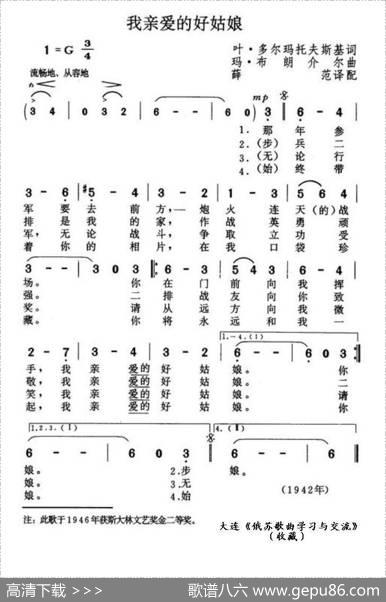 我亲爱的好姑娘
1=G 3/4
叶·多尔玛托夫斯基词
玛·布朗介尔曲
薛范译配
流畅地、从容地
mp
(3 4 0 3 2 6 - - 6 0) 3 6 - 3
1. 那年参
2. (步)兵二
3. (无)论行
4. (始)终带
3 - 6 #5 - 4 3 - 2 3 - 2 5 - 5 5 6 4
军要去前方,—炮火连天(的)战
排是我的家,作战英勇顽
军,无论战斗,争取立功受
着你的相片,在我口袋珍
场。你在门前向我挥
强。二排战友向你致
奖。请从远方向我微
藏。你将永远和我一
1.-4.(1)
手,我亲爱的好姑娘。你
敬,我亲爱的好姑娘。二
笑,我亲爱的好姑娘。请
起,我亲爱的好姑娘。你
1.2.3.(1)
4.(1)
娘。2.步娘。
娘。3.无
娘。4.始
(1942年)
注:此歌于1946年获斯大林文艺奖金二等奖。
大连《俄苏歌曲学习与交流》
(收藏)
高清下载 >>> 歌谱八六 www.gepu86.com